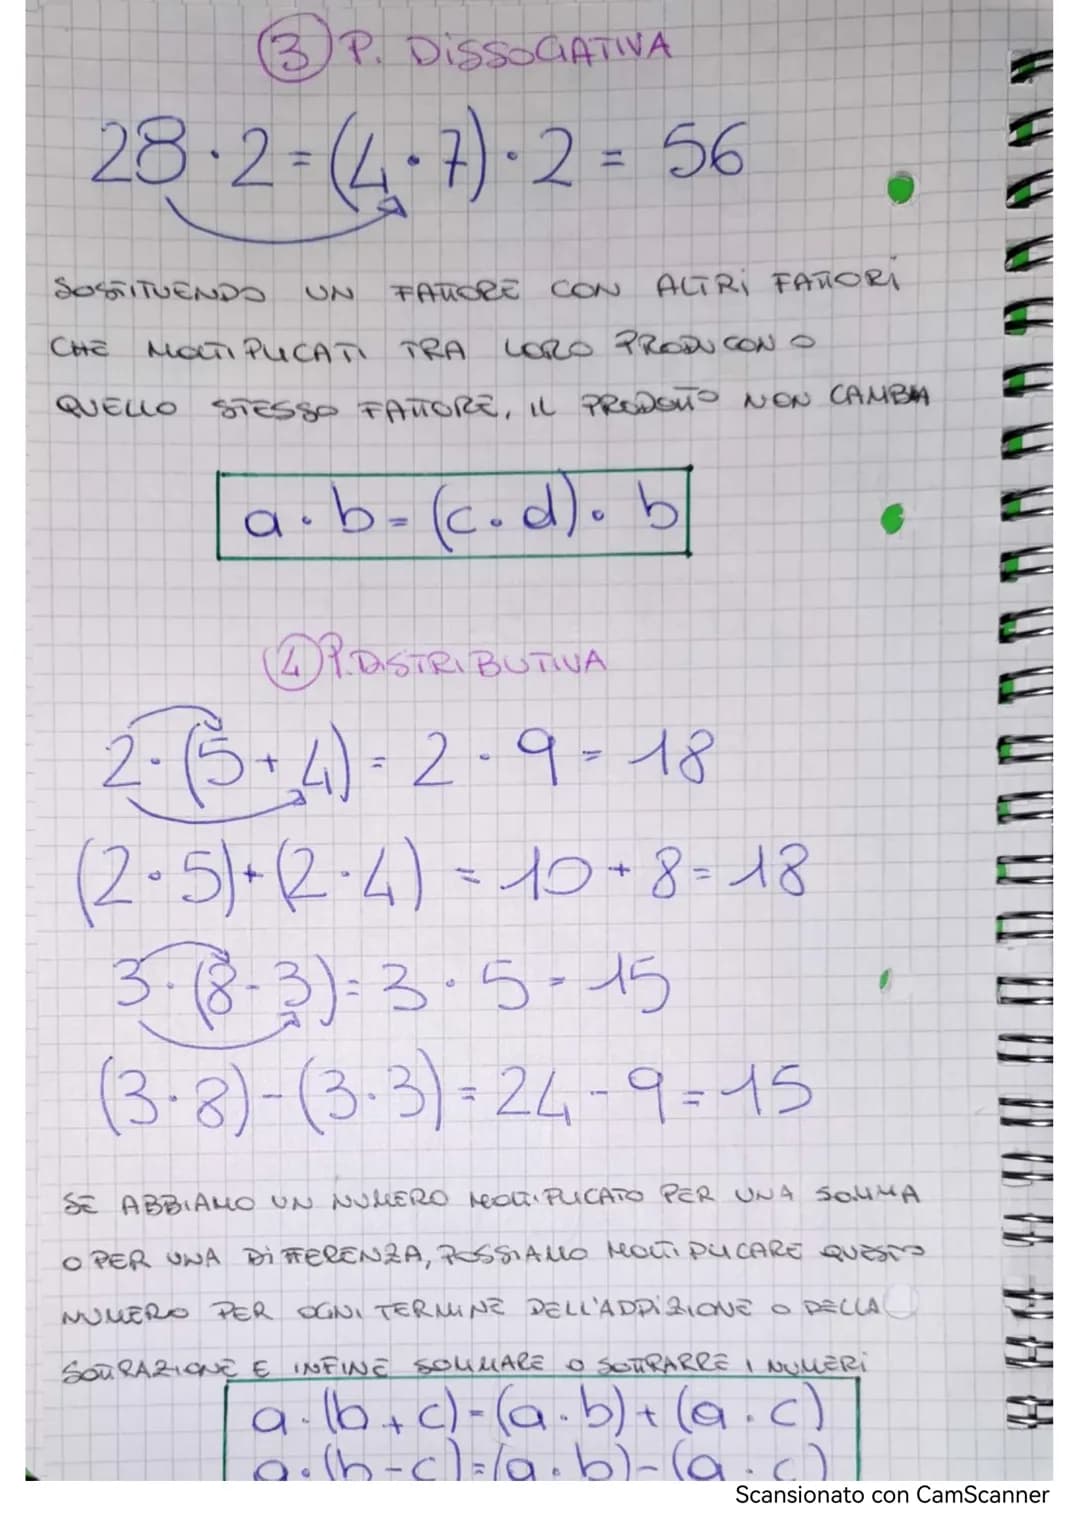 ③ P. DISSOCIATIVA
28 · 2 = (4 · 7) · 2 = 56
SOSTITUENDO UN FATTORE CON ALTRI FATTORI
CHE MOLTIPLICATI TRA LORO PRODUCONO
QUELLO STESSO FATTORE, IL PRODOTTO NON CAMBIA
a · b = (c · d) · b
④ P. DISTRIBUTIVA
2 · (5 + 4) = 2 · 9 = 18
(2 · 5) + (2 · 4) = 10 + 8 = 18
3 · (8 - 3) = 3 · 5 = 15
(3 · 8) - (3 · 3) = 24 - 9 = 15
SE ABBIAMO UN NUMERO MOLTIPLICATO PER UNA SOMMA
O PER UNA DIFFERENZA, POSSIAMO MOLTIPLICARE QUESTO
NUMERO PER OGNI TERMINE DELL'ADDIZIONE O DELLA
SOTTRAZIONE E INFINE SOMMARE O SOTTRARRE I NUMERI
a · (b + c) = (a · b) + (a · c)
a · (b - c) = (a · b) - (a · c)
Scansionato con CamScanner